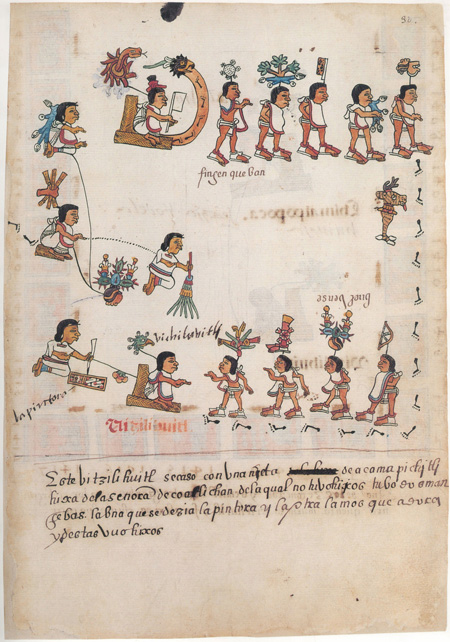 fingen que ban
vichilihuitl
la pintora
Vitzilihuitl
Este vitzilihuitl se caso con vna nieta de acamapichtli
hixa de la señora de coatlichan de la qual no huvo hixos tubo dos man
çebas. la vna que se dezia la pintora y la otra la mosqueadora
y destas vuo hixos